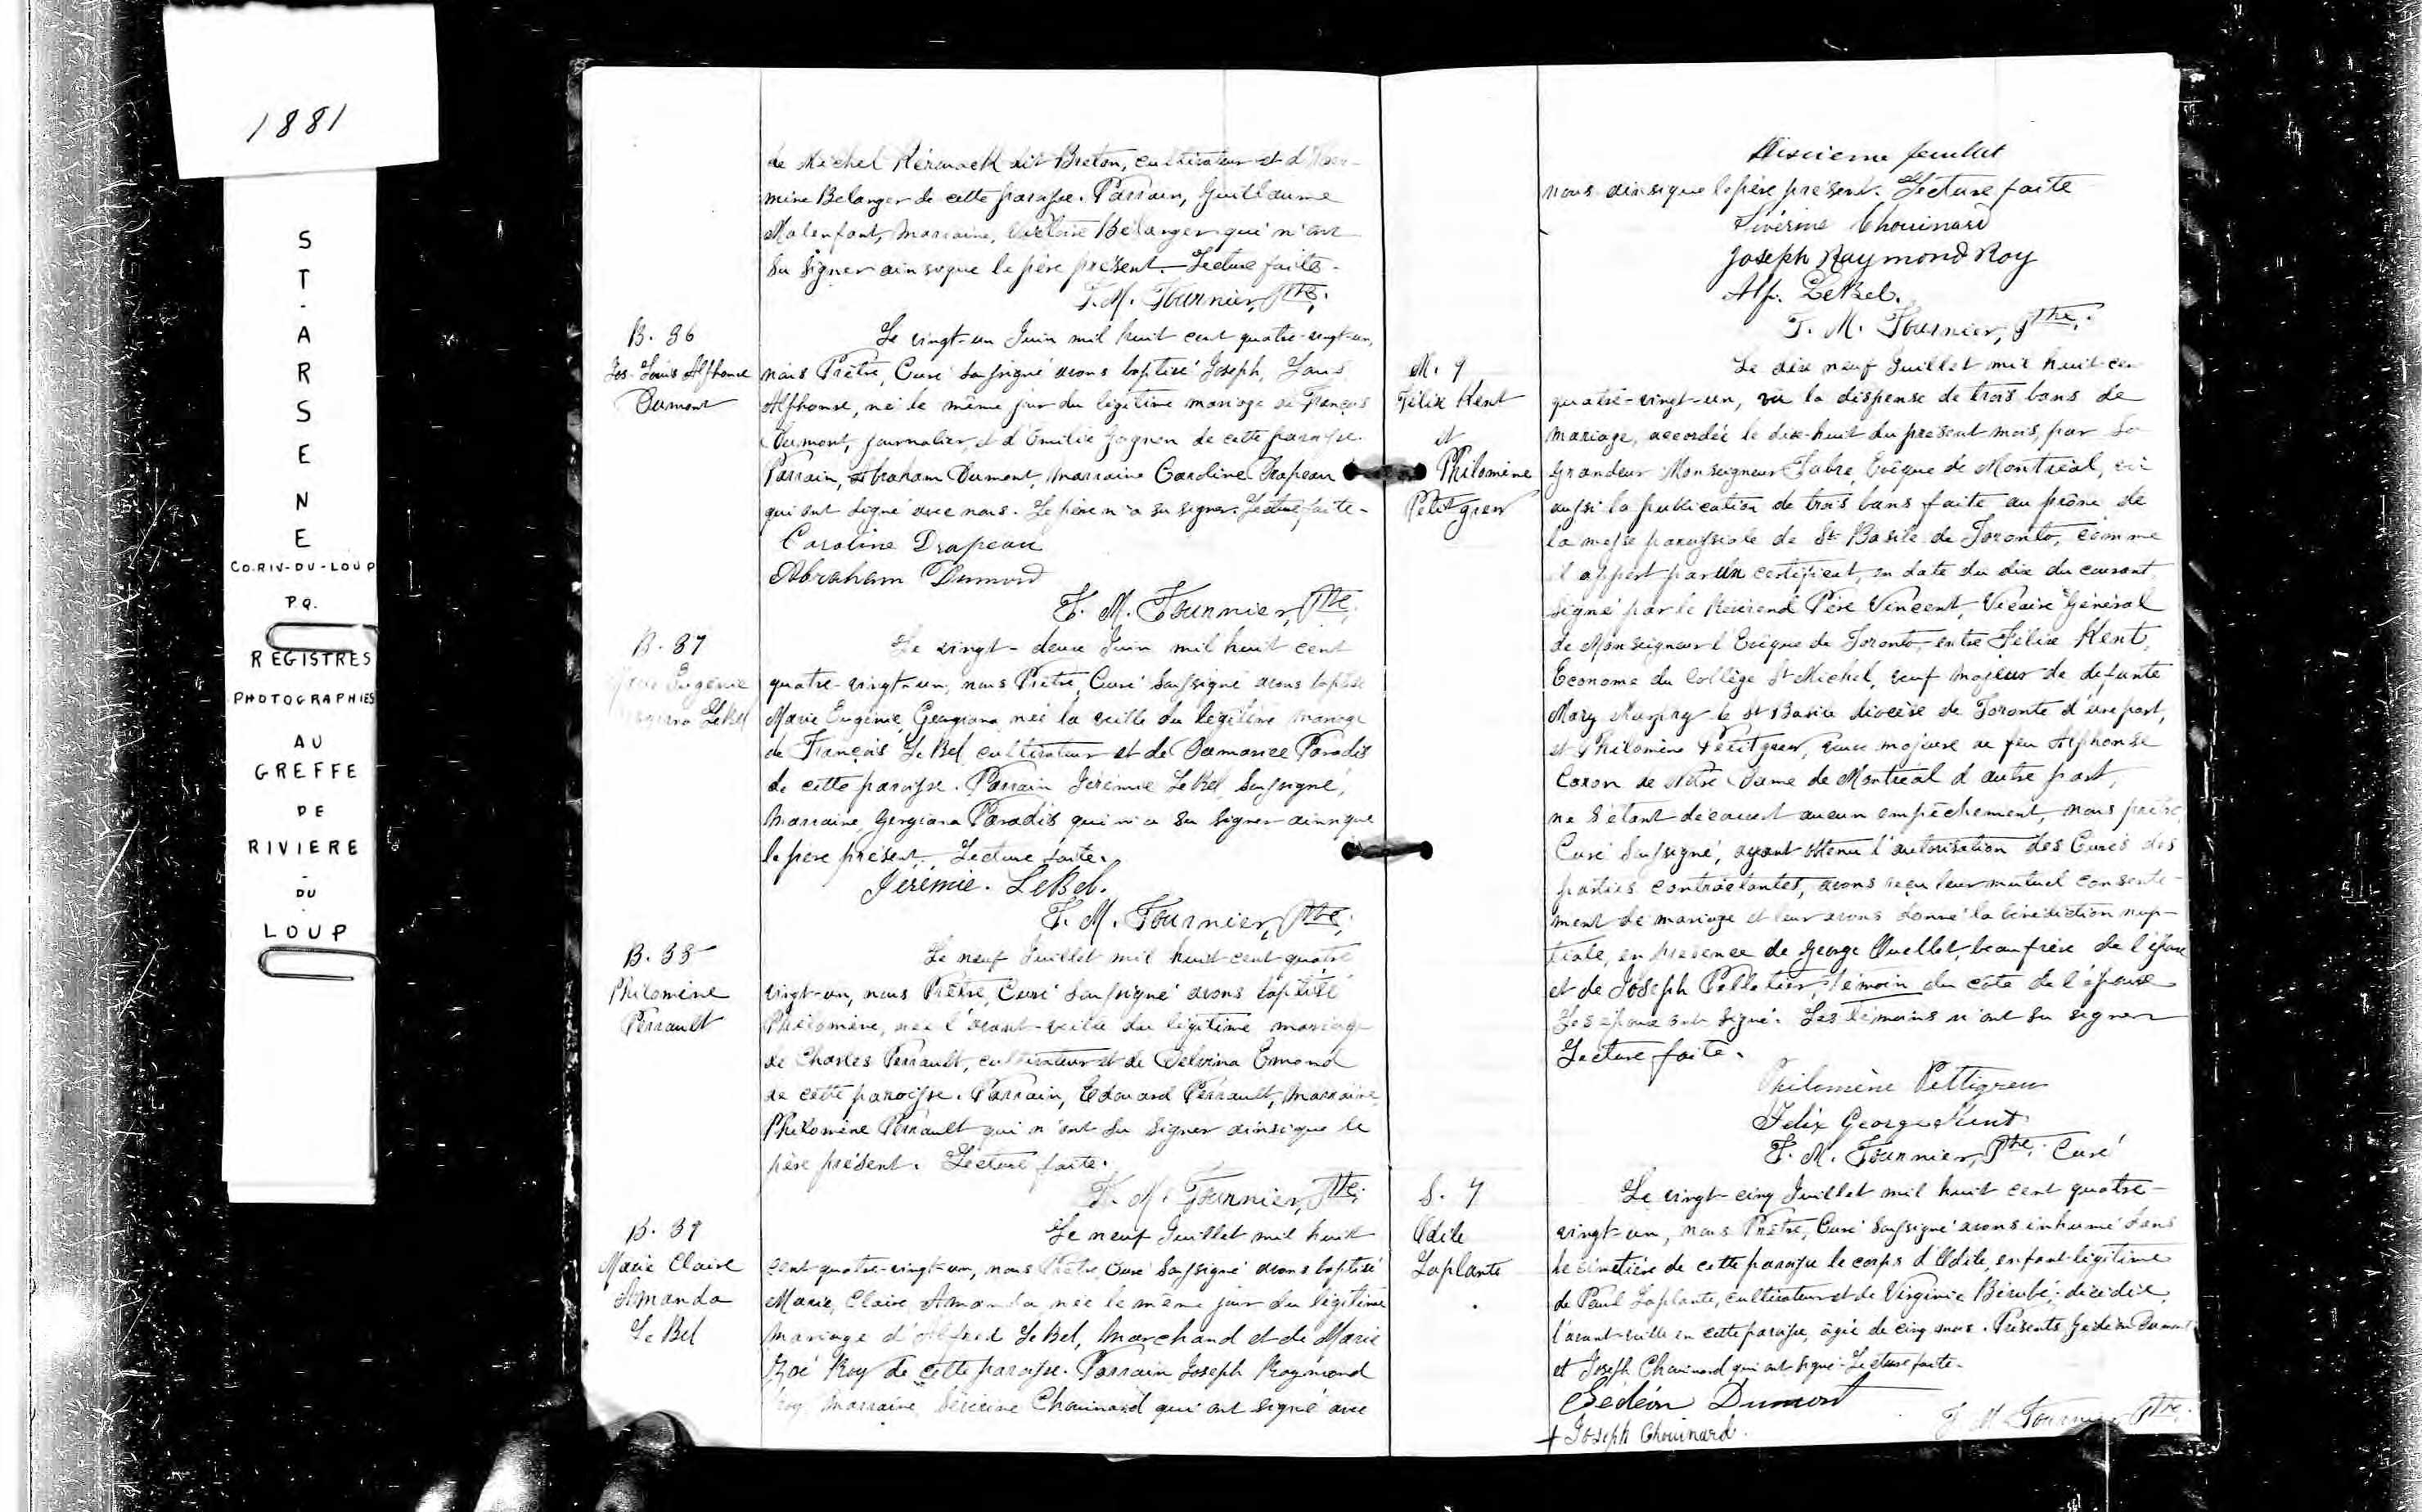 1881
ST. ARSENE
CO. RIV-DU-LOUP
P.Q.
REGISTRES
PHOTOGRAPHIES
AU
GREFFE
DE
RIVIERE
DU
LOUP
de Michel Kérouack dit Breton, cultivateur et d'Her-
mine Belanger de cette paroisse. Parrain, Guillaume
Malenfant, Marraine, Bélanger qui n'ont
su signer ainsi que le père présent. Lecture faite.
F. M. Fournier, Ptre.
B. 36
Jos. Louis Alphonse
Dumont
Le vingt-un Juin mil huit cent quatre-vingt-un,
nous Prêtre, Curé soussigné avons baptisé Joseph, Louis
Alphonse, né le même jour du légitime mariage de François
Dumont, journalier, et d'Emilie Gagnon de cette paroisse.
Parrain, Abraham Dumont, marraine Caroline Drapeau
qui ont signé avec nous. Le père n'a su signer. Lecture faite.
Caroline Drapeau
Abraham Dumond
F. M. Fournier, Ptre.
B. 37
Marie Eugénie
Georgiana LeBel
Le vingt-deux Juin mil huit cent
quatre-vingt-un, nous Prêtre, Curé soussigné avons baptisé
Marie Eugénie, Georgiana née la veille du légitime mariage
de François LeBel cultivateur et de Paradis
de cette paroisse. Parrain Jérémie LeBel, soussigné,
Marraine, Georgiana Paradis qui n'a su signer ainsi que
le père présent. Lecture faite.
Jérémie. LeBel.
F. M. Fournier, Ptre.
B. 38
Philomène
Perrault
Le neuf Juillet mil huit cent quatre
vingt-un, nous Prêtre, Curé soussigné avons baptisé
Philomène, née l'avant-veille du légitime mariage
de Charles Perrault, cultivateur et de Delvina Emond
de cette paroisse. Parrain, Edouard Perrault, Marraine,
Philomène Perrault qui n'ont su signer ainsi que le
père présent. Lecture faite.
F. M. Fournier, Ptre.
B. 39
Marie Claire
Amanda
LeBel
Le neuf Juillet mil huit
cent quatre-vingt-un, nous Prêtre, Curé soussigné avons baptisé
Marie, Claire, Amanda née le même jour du légitime
mariage d'Alfred LeBel, Marchand et de Marie
Zoé Roy de cette paroisse. Parrain Joseph Raymond
Roy Marraine, Séverine Chouinard qui ont signé avec
Dixième feuillet
nous ainsi que le père présent. Lecture faite
Séverine Chouinard
Joseph Raymond Roy
Alf. LeBel.
F. M. Fournier, Ptre.
M. 9
Félix Kent
et
Philomène
Petitgrew
Le dix neuf Juillet mil huit cen
quatre-vingt-un, vu la dispense de trois bans de
mariage, accordée le dix-huit du présent mois, par Sa
Grandeur Monseigneur Fabre, Evêque de Montréal, vu
aussi la publication de trois bans faite au prône de
la messe paroissiale de St Basile de Toronto, comme
il appert par un certificat, en date du dix du courant
signé par le Révérend Père Vincent, Vicaire Général
de Monseigneur l'Evêque de Toronto, entre Félix Kent,
Econome du Collège St Michel, veuf majeur de defunte
Mary de St Basile diocèse de Toronto d'une part,
et Philomène Petitgrew, veuve majeure de feu Alphonse
Caron de Notre Dame de Montréal d'autre part,
ne s'étant découvert aucun empêchement, nous prêtre,
Curé soussigné, ayant obtenu l'autorisation des Curés des
parties contractantes, avons reçu leur mutuel consente-
ment de mariage et leur avons donné la bénédiction nup-
tiale, en présence de George Ouellet, beau frère de l'époux
et de Joseph Pelletier, témoin du côté de l'épouse
Les époux ont signé. Les témoins n'ont su signer
Lecture faite.
Philomène Pettigrew
Felix George Kent
F. M. Fournier, Ptre. Curé
S. 7
Odile
Laplante
Le vingt-cinq Juillet mil huit cent quatre-
vingt-un, nous Prêtre, Curé soussigné avons inhumé dans
le cimetière de cette paroisse le corps d'Odile, enfant légitime
de Paul Laplante, cultivateur et de Virginie Bérubé, décédée
l'avant-veille en cette paroisse, âgée de cinq mois. Présents Gédéon Dumont
et Joseph Chouinard qui ont signé. Lecture faite.
Gédéon Dumont
F. M. Fournier Ptre.
+ Joseph Chouinard.